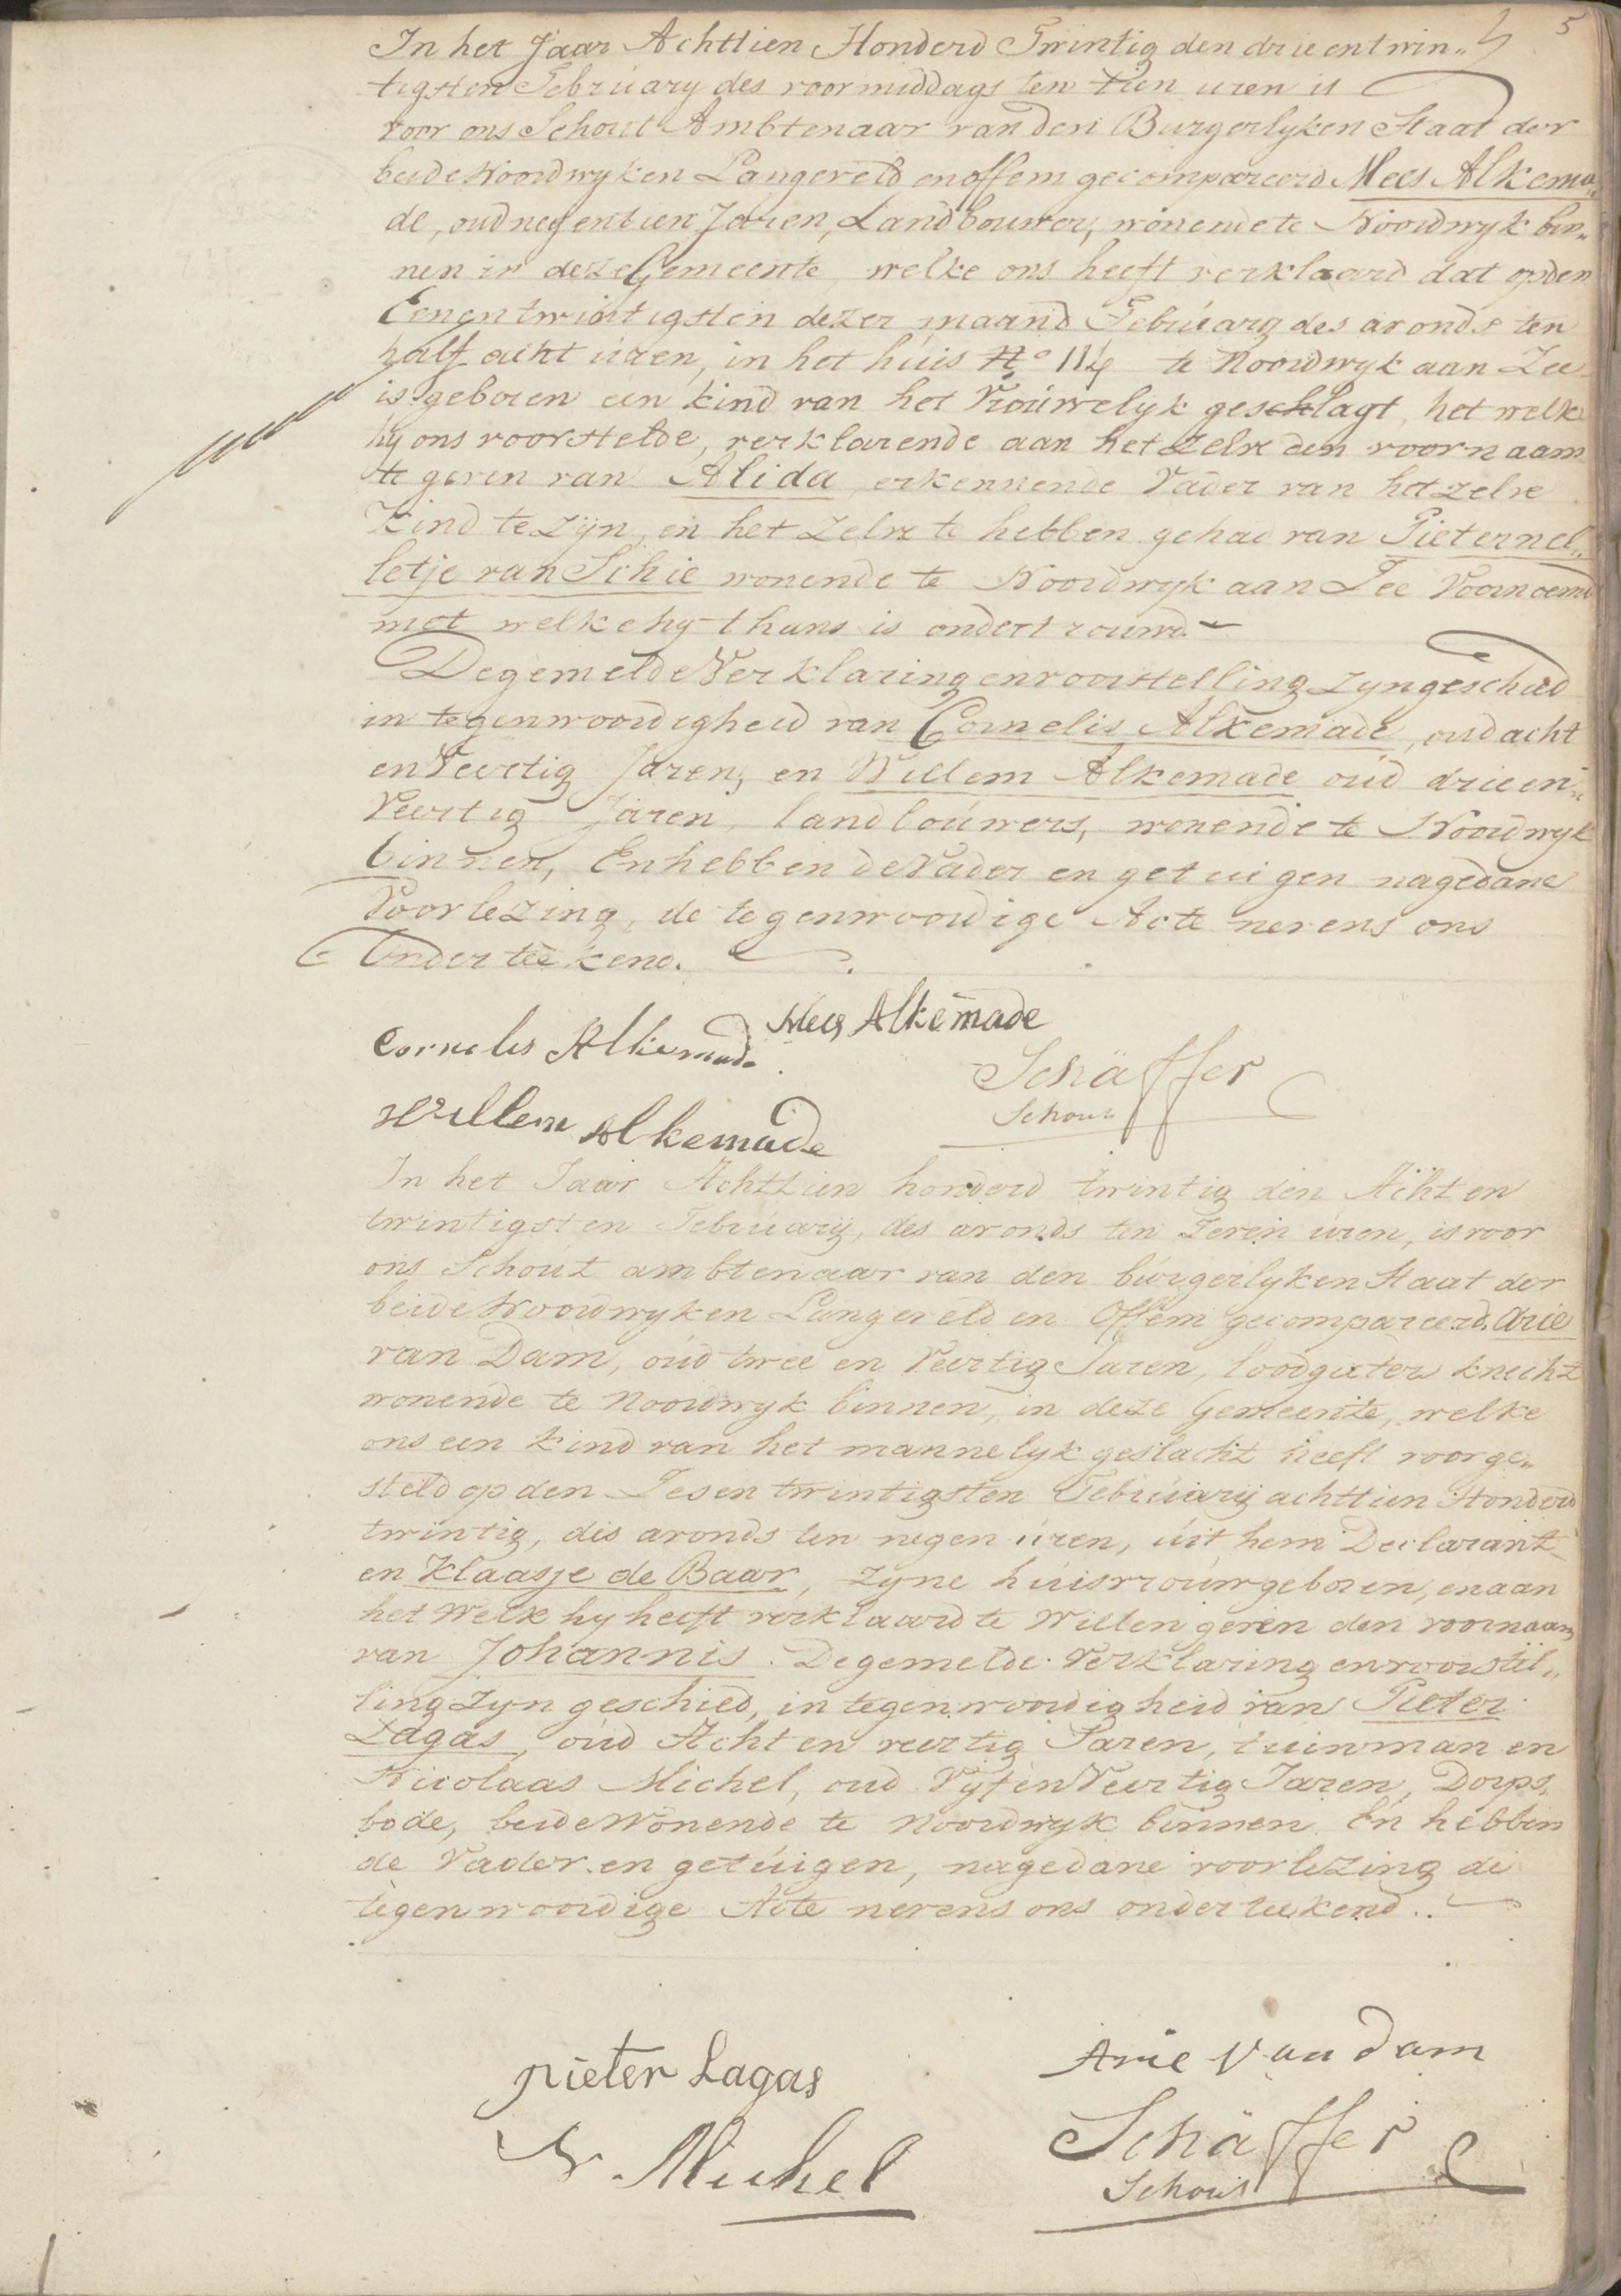 5
In het Jaar Achttien Honderd Twintig den drie en twin„
tigsten February des voormiddags ten tien uren is
voor ons Schout Ambtenaar van den Burgerlyken Staat der
beide Noordwyken Langeveld en offem gecompareerd Mees Alkema„
de, oud negentien Jaren, Landbouwer, wonende te Noordwyk bin„
nen in deze Gemeente, welke ons heeft verklaard dat op den
Eenentwintigsten dezer maand February des avonds ten
half acht uren, in het huis No 114 te Noordwyk aan Zee
is geboren een kind van het Vrouwelyk geschlagt, het welk
hy ons voorstelde, verklarende aan het zelve den voornaam
te geven van Alida, erkennende Vader van het zelve
Kind te zyn, en het zelve te hebben gehad van Pieternel„
letje van Schie wonende te Noordwyk aan Zee Voornoemd
met welke hy thans is ondertrouwd.
De gemelde Verklaring en voorstelling zyn geschied
in tegenwoordigheid van Cornelis Alkemade, oud acht
en Veertig Jaren, en Willem Alkemade oud drie en„
Veertig Jaren, landbouwers, wonende te Noordwyk
binnen, En hebben de Vader en getuigen nagedane
Voorlezing, de tegenwoordige Acte nevens ons
Onderteekend.
Mees Alkemade
Cornelis Alkemade
Schäffer
Schout
Willem Alkemade
In het Jaar Achttien honderd twintig den Acht en
twintigsten February, des avonds ten Zeven uren, is voor
ons Schout ambtenaar van den burgerlyken Staat der
beide Noordwyken Langeveld en Offem gecompareerd. Arie
van Dam, oud twee en Veertig Jaren, loodgieters knecht
wonende te Noordwyk binnen, in deze Gemeente, welke
ons een kind van het mannelyk geslacht heeft voorge„
steld op den Zesentwintigsten February achttien Honderd
twintig, des avonds ten negen uren, uit hem Declarant
en Klaasje de Baar, zyne huisvrouw geboren, en aan
het Welk hy heeft verklaard te Willen geven den voornaam
van Johannis. De gemelde Verklaring en voorstel„
ling zyn geschied, in tegenwoordigheid van Pieter
Lagas, oud Acht en veertig Jaren, tuinman en
Nicolaas Michel, oud Vyf en Veertig Jaren, Dorps„
bode, beide Wonende te Noordwyk binnen. En hebben
de Vader en getuigen, nagedane voorlezing de
tegenwoordige Acte nevens ons onderteekend.
Arie van dam
pieter Lagas
Schäffer
N Michel
Schout